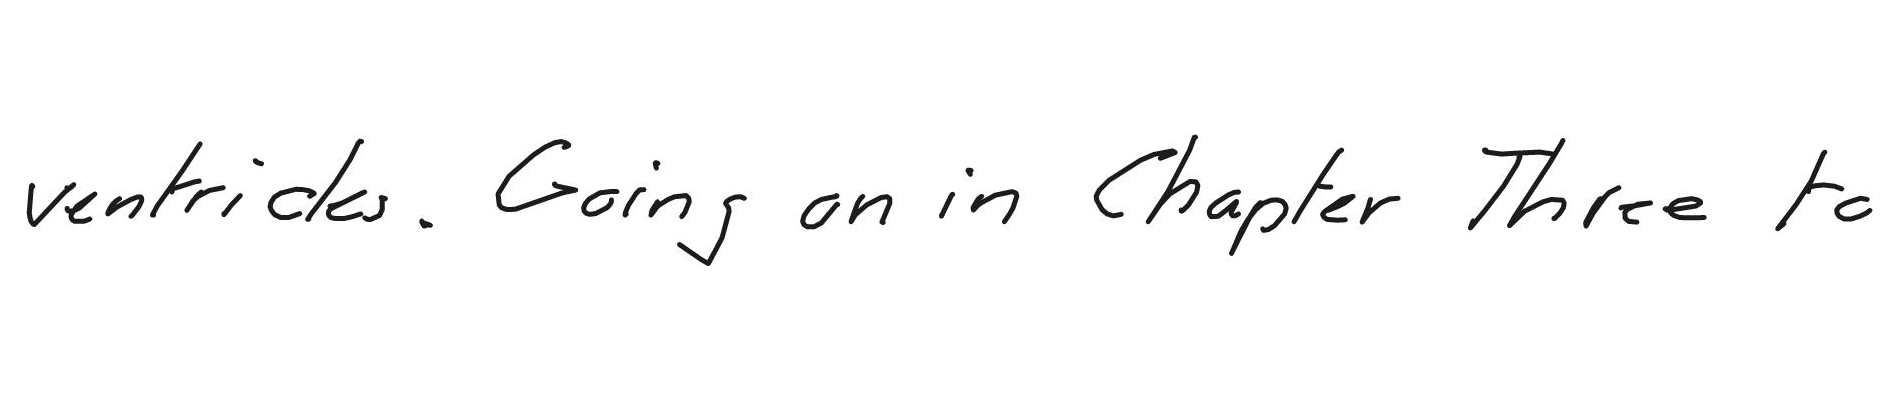 ventricles. Going on in Chapter Three to